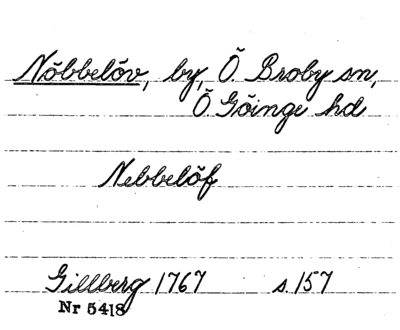 Nõbbelõv, by, Õ. Broby sn,
Õ Gõinge hd
Nebbelõf
Gillberg 1767 s. 157
Nr 5418